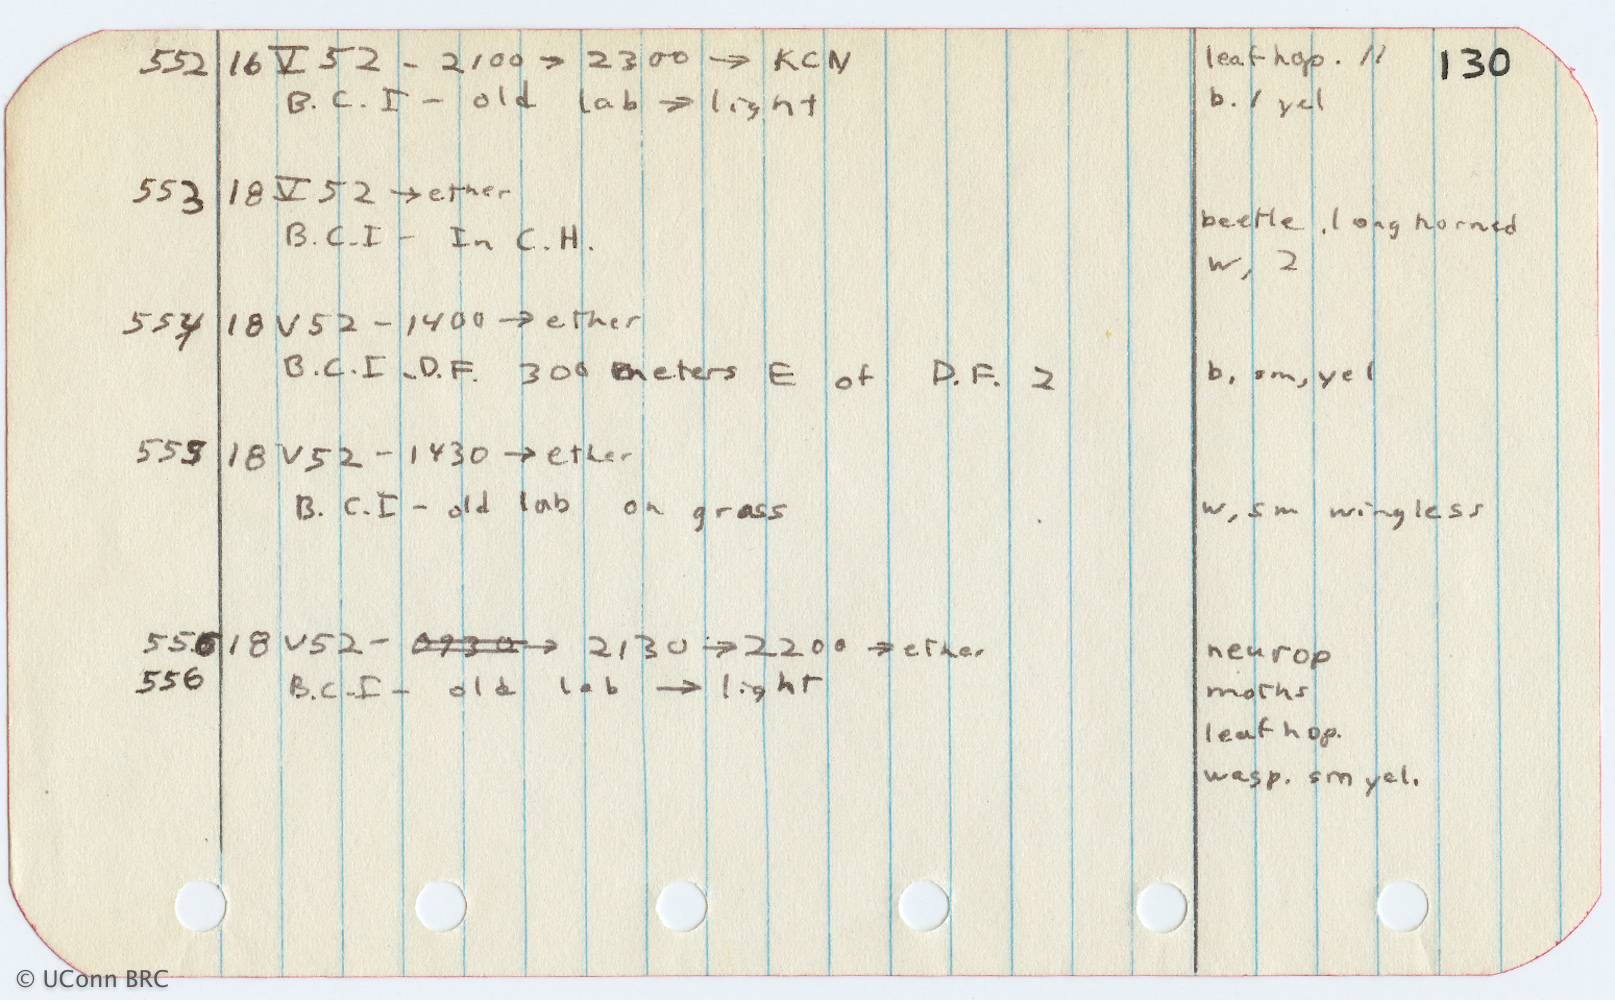 130
552 16 V 52 - 2100 → 2300 → KCN leafhop. 11
B.C.I - old lab → light b. 1 yel
553 18 V 52 → ether
B.C.I - In C.H. beetle, longhorned
w, 2
554 18 V 52 - 1400 → ether
B.C.I - D.F. 300 meters E of D.F. 2 b, sm, yel
555 18 V 52 - 1430 → ether
B.C.I - old lab on grass w, sm wingless
556 18 V 52 - 0930 → 2130 → 2200 → ether neurop
556 B.C.I - old lab → light moths
leafhop.
wasp. sm yel.
© UConn BRC